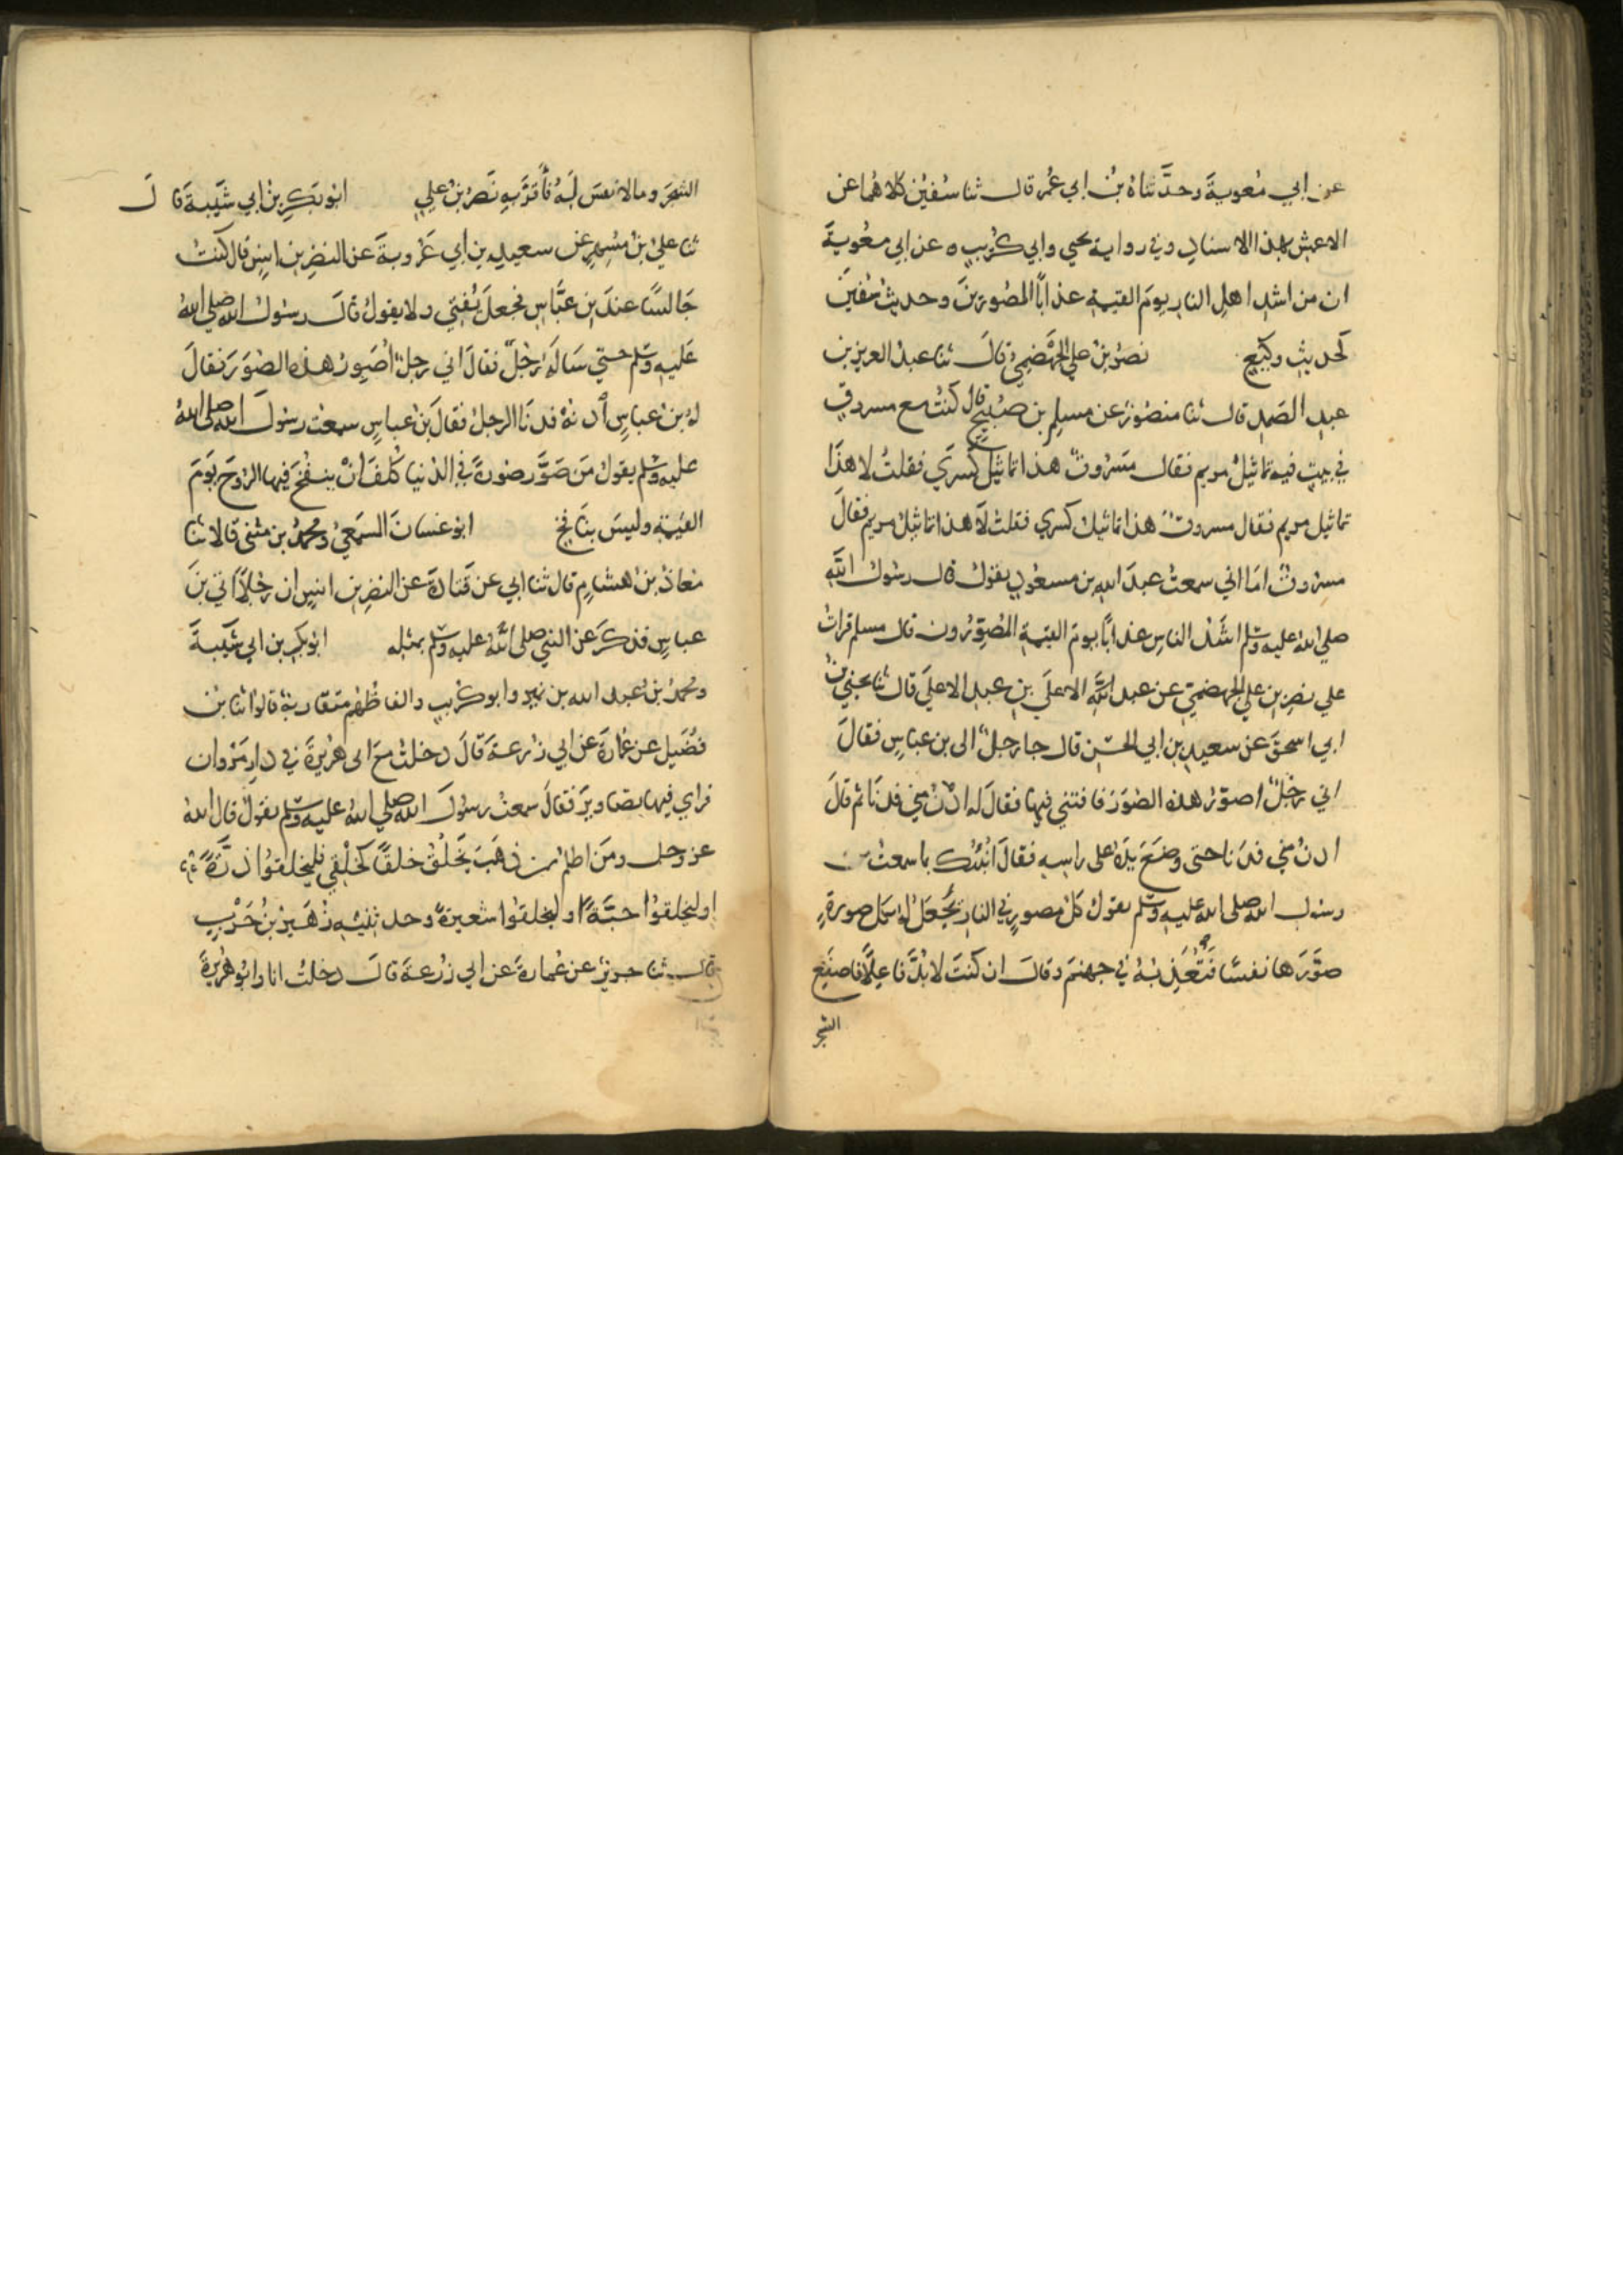 عن ابي معوية وحدثناه بن ابي عمر قال ثنا سفين كلاهما عن
الاعمش بهذا الاسناد وفي رواية يحيي وابي كريب ه عن ابي معوية
ان من اشد اهل النار يوم القيمة عذابا المصورين وحديث سفين
كحديث وكيع نصر بن علي الجهضمي قال ثنا عبد العزيز بن
عبد الصمد قال ثنا منصور عن مسلم بن صبيح قال كنت مع مسروق
في بيت فيه تماثيل مريم فقال مسروق هذا تماثيل كسري فقلت لا هذا
تماثيل مريم فقال مسروق هذا تماثيل كسري فقلت لا هذا تماثيل مريم فقال
مسروق اما اني سمعت عبد الله بن مسعود يقول قال رسول الله
صلي الله عليه وسلم اشد الناس عذابا يوم القيمة المصورون قال مسلم قرات
علي نصر بن علي الجهضمي عن عبد الله الاعلي بن عبد الاعلي قال ثنا يحيي بن
ابي اسحق عن سعيد بن ابي الحسن قال جا رجل الى بن عباس فقال
اني رجل اصور هذه الصور فافتني فيها فقال له ادن مني فدنا ثم قال
ادن مني فدنا حتى وضع يده على راسه فقال انبئك بما سمعت من
رسول الله صلى الله عليه وسلم يقول كل مصور في النار يجعل له بكل صورة
صورها نفسا فتعذبه في جهنم وقال ان كنت لا بد فاعلا فاصنع
الشجر
الشجر وما لا نفس له فأقر به نصر بن علي ابو بكر بن ابي شيبة قال
ثنا علي بن مسهر عن سعيد بن ابي عروبة عن النضر بن انس قال كنت
جالسا عند بن عباس فجعل يفتي ولا يقول قال رسول الله صلي الله
عليه وسلم حتي ساله رجل فقال اني رجل اصور هذه الصور فقال
له بن عباس ادنه فدنا الرجل فقال بن عباس سمعت رسول الله صلى الله
عليه وسلم يقول من صور صورة في الدنيا كلف ان ينفخ فيها الروح يوم
القيمة وليس بنافخ ابو غسان السمعي ومحمد بن مثنى قالا ثنا
معاذ بن هشام قال ثنا ابي عن قتادة عن النضر بن انس ان رجلا اتي بن
عباس فذكر عن النبي صلى الله عليه وسلم بمثله ابو بكر بن ابي شيبة
ومحمد بن عبد الله بن نمير وابو كريب والفاظهم متقاربة قالوا ثنا بن
فضيل عن عمارة عن ابي زرعة قال دخلت مع ابى هريرة في دار مروان
فراي فيها تصاوير فقال سمعت رسول الله صلي الله عليه وسلم يقول قال الله
عز وجل ومن اظلم ممن ذهب يخلق خلقا كخلقي فليخلقوا ذرة
او ليخلقوا حبة او ليخلقوا شعيرة وحدثنيه زهير بن حرب
قال ثنا جرير عن عمارة عن ابي زرعة قال دخلت انا وابو هريرة